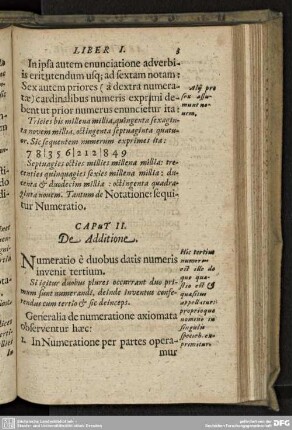 LIBER I. 3
In ipsa autem enunciatione adverbi-
is erit utendum usq; ad sextam notam:
Sex autem priores (à dextra numera-
tæ) cardinalibus numeris exprimi de-
bent ut prior numerus enuncietur ita:
Trities bis millena millia, quingenta sexagin-
ta novem millia, octingenta septuaginta quatu-
or. Sic sequentem numerum exprimes ita:
78|356|212|849
Septuagies octies millies millena millia: tre-
centies quinquagies sexies millena millia: du-
centa & duodecim millia: octingenta quadra-
ginta novem. Tantum de Notatione: sequi-
tur Numeratio.
CAPUT II.
De Additione.
Numeratio è duobus datis numeris
invenit tertium.
Si igitur duobus plures occurrant duo pri-
mum sunt numerandi, deinde inventus confe-
rendus cum tertio & sic deinceps.
Generalia de numeratione axiomata
observentur hæc:
1. In Numeratione per partes opera-
mur
Alij pro
sex assu-
munt no-
vem.
Hic tertius
numerus
est ille de
quo quæ-
stio est &
quasitus
appellatur:
proprioque
nomine in
singulis
speciebus ex-
primitur.